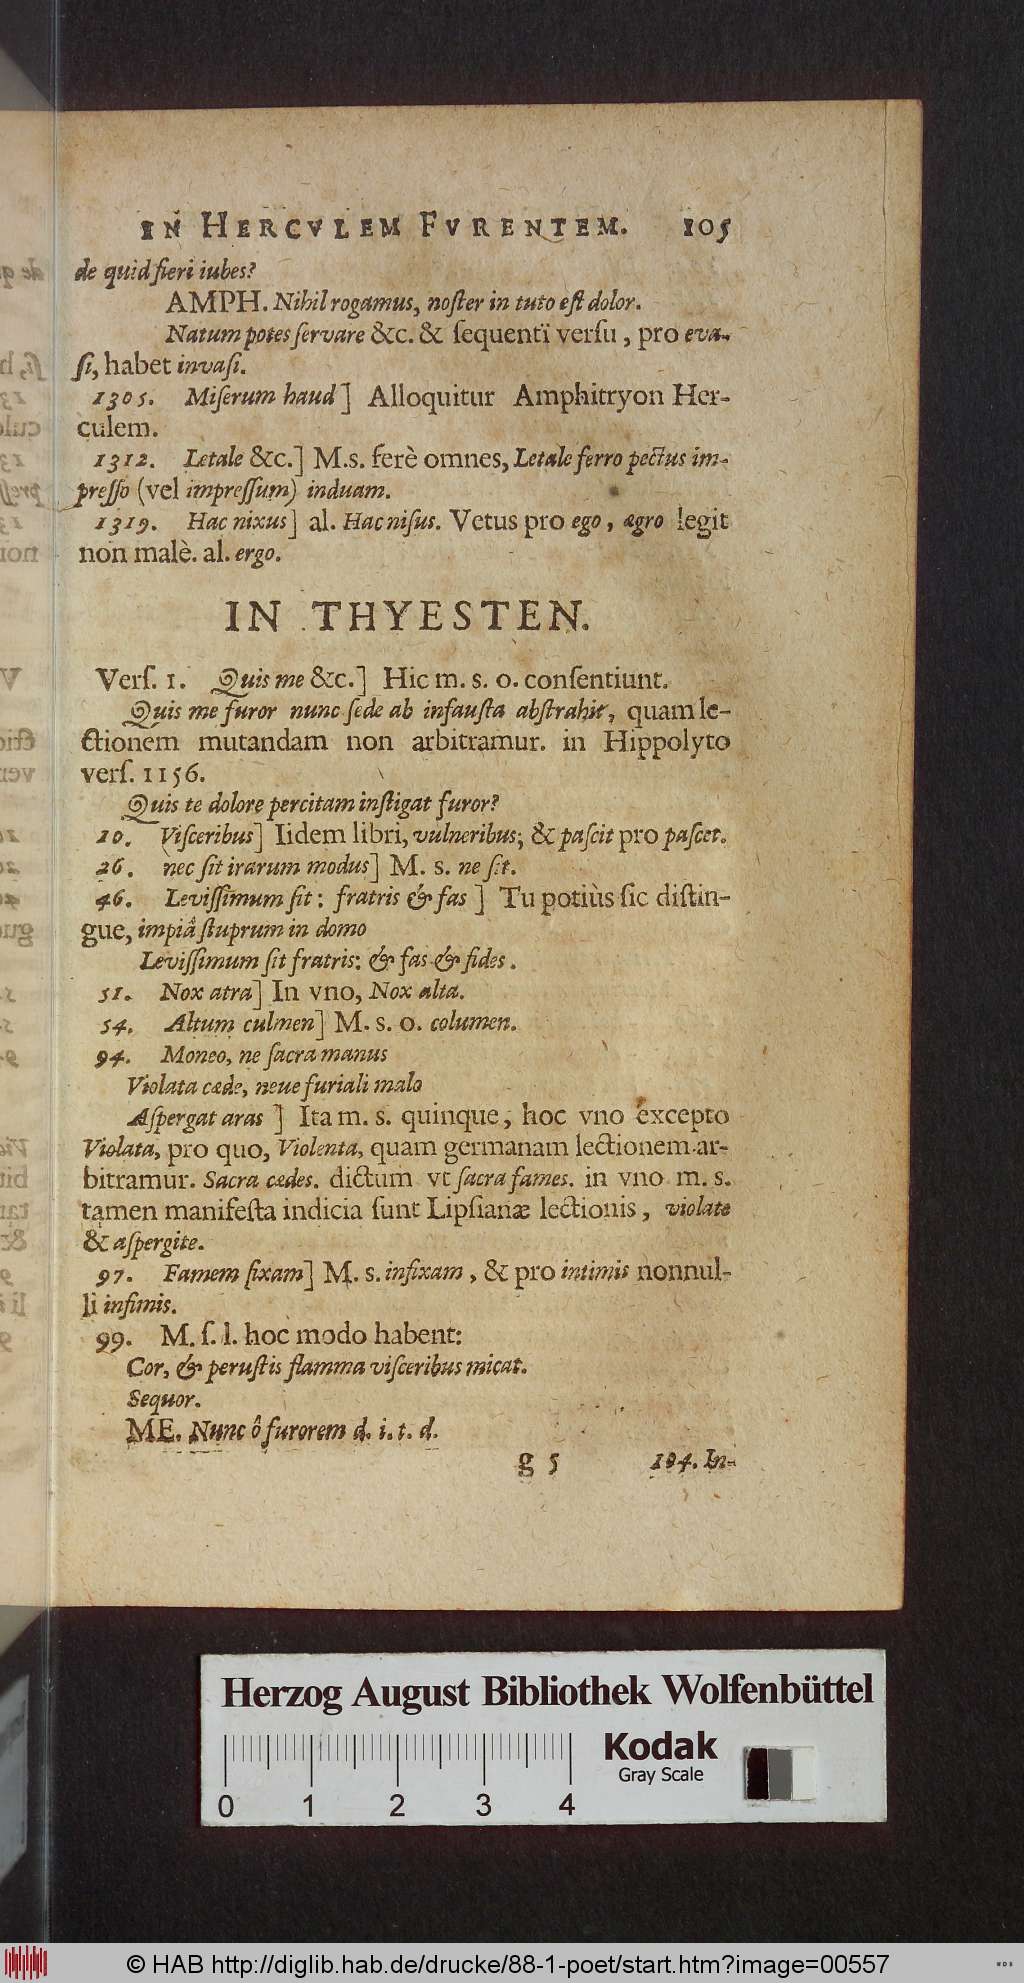 IN HERCVLEM FVRENTEM. 105
de quid fieri iubes?
AMPH. Nihil rogamus, noſter in tuto eſt dolor.
Natum potes ſervare &c. & ſequenti verſu, pro eva-
ſi, habet invaſi.
1305. Miſerum haud] Alloquitur Amphitryon Her-
culem.
1312. Letale &c.] M.s. ferè omnes, Letale ferro pectus im-
preſſo (vel impreſſum) induam.
1319. Hac nixus] al. Hac niſus. Vetus pro ego, ægro legit
non malè. al. ergo.
IN THYESTEN.
Verſ. 1. Quis me &c.] Hic m. s. o. conſentiunt.
Quis me furor nunc ſede ab infauſta abſtrahit, quam le-
ctionem mutandam non arbitramur. in Hippolyto
verſ. 1156.
Quis te dolore percitam inſtigat furor?
10. Viſceribus] Iidem libri, vulneribus; & paſcit pro paſcet.
26. nec ſit irarum modus] M. s. ne ſit.
46. Leviſſimum ſit: fratris & fas] Tu potiùs ſic diſtin-
gue, impiâ ſtuprum in domo
Leviſſimum ſit fratris: & fas & fides.
51. Nox atra] In vno, Nox alta.
54. Altum culmen] M. s. o. columen.
94. Moneo, ne ſacra manus
Violata cæde, neue furiali malo
Aſpergat aras] Ita m. s. quinque, hoc vno excepto
Violata, pro quo, Violenta, quam germanam lectionem ar-
bitramur. Sacra cædes. dictum vt ſacra fames. in vno m. s.
tamen manifeſta indicia ſunt Lipſianæ lectionis, violate
& aſpergite.
97. Famem fixam] M. s. infixam, & pro intimis nonnul-
li infimis.
99. M. ſ. l. hoc modo habent:
Cor, & peruſtis flamma viſceribus micat.
Sequor.
ME. Nunc ô furorem d. i. t. d.
g 5 104. In-
Herzog August Bibliothek Wolfenbüttel
Kodak
Gray Scale
0 1 2 3 4
© HAB http://diglib.hab.de/drucke/88-1-poet/start.htm?image=00557